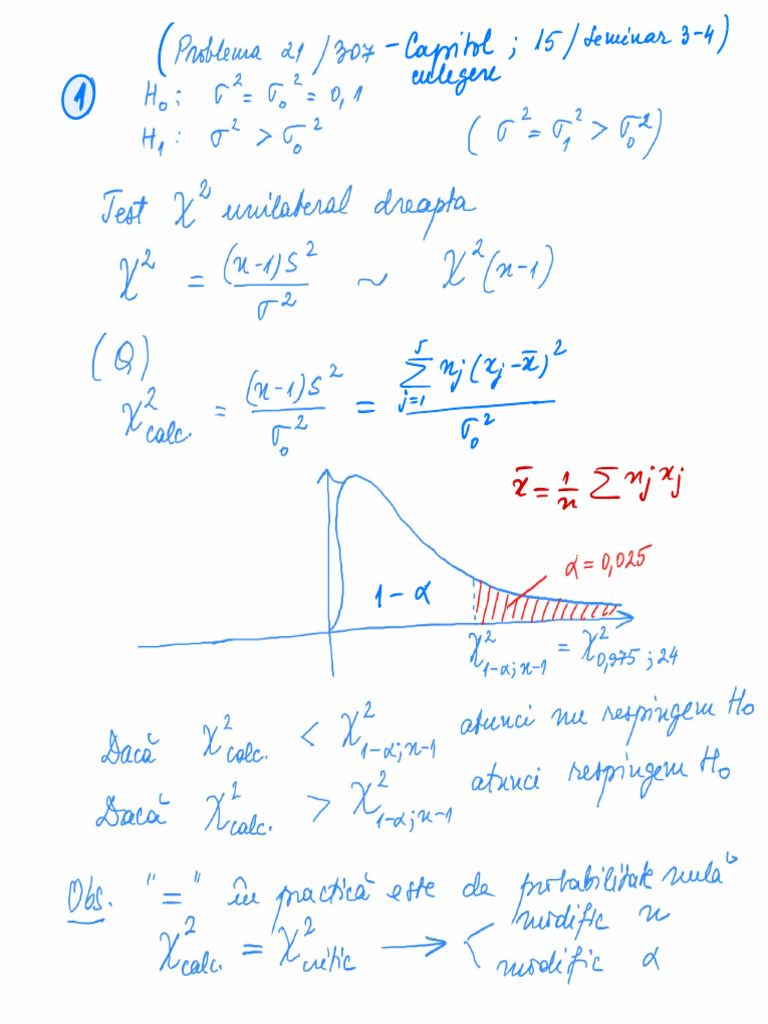 (Problema 21/307 - Capitol; 15/Seminar 3-4)
culegere
1
H₀: σ² = σ₀² = 0,1
H₁: σ² > σ₀² (σ² = σ₁² > σ₀²)
Test χ² unilateral dreapta
χ² = (n-1)S² / σ² ~ χ²(n-1)
(Q)
χ²calc. = (n-1)S² / σ₀² = ∑_{j=1}^{5} nj(xj - x̄)² / σ₀²
x̄ = 1/n ∑ nj xj
α = 0,025
1 - α
χ²1-α;n-1 = χ²0,975;24
Dacă χ²calc. < χ²1-α;n-1 atunci nu respingem H₀
Dacă χ²calc. > χ²1-α;n-1 atunci respingem H₀
Obs. "=" în practică este de probabilitate nulă
χ²calc. = χ²critic → < modific n
modific α